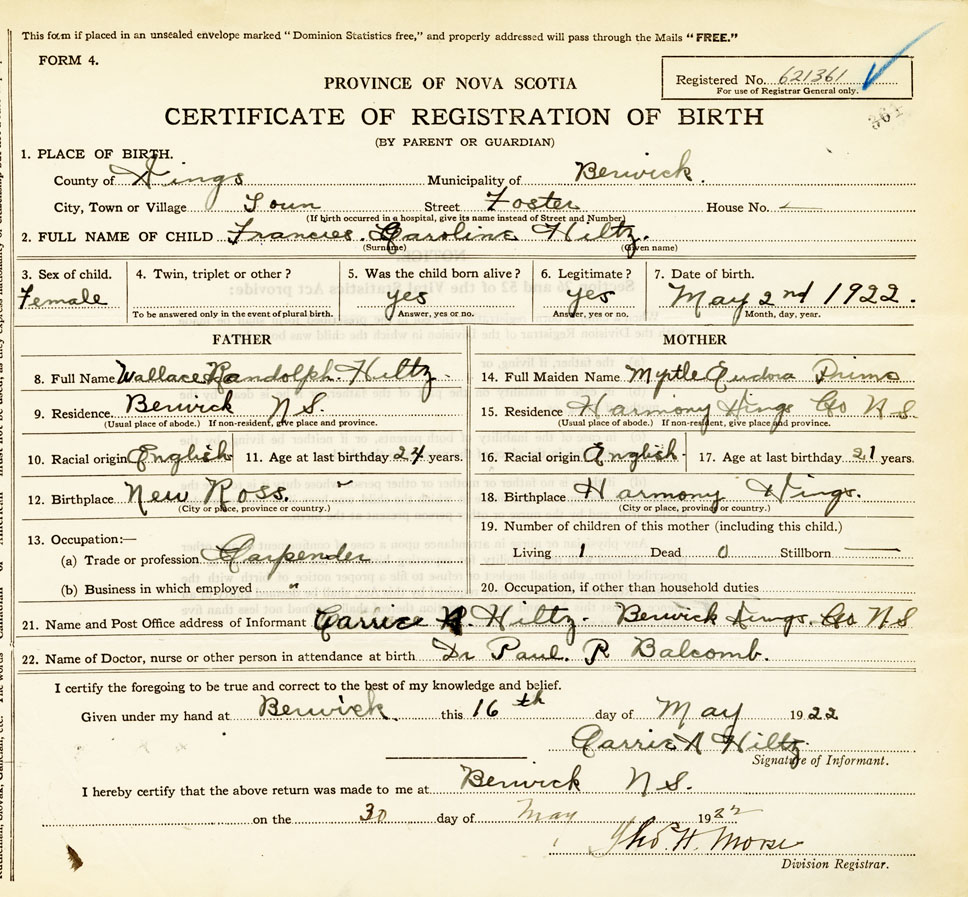 This form if placed in an unsealed envelope marked "Dominion Statistics free," and properly addressed will pass through the Mails "FREE."
FORM 4.
Registered No. 621361
For use of Registrar General only.
361
PROVINCE OF NOVA SCOTIA
CERTIFICATE OF REGISTRATION OF BIRTH
(BY PARENT OR GUARDIAN)
1. PLACE OF BIRTH.
County of Kings Municipality of Berwick.
City, Town or Village Toun Street Foster House No. —
(If birth occurred in a hospital, give its name instead of Street and Number)
2. FULL NAME OF CHILD Frances. Caroline Hiltz.
(Surname) (Given name)
3. Sex of child. 4. Twin, triplet or other? 5. Was the child born alive? 6. Legitimate? 7. Date of birth.
Female yes yes May 2nd 1922.
To be answered only in the event of plural birth. Answer, yes or no. Answer, yes or no. Month, day, year.
FATHER MOTHER
8. Full Name Wallace Randolph Hiltz 14. Full Maiden Name Myrtle Eudora
9. Residence. Berwick N S. 15. Residence Harmony Kings Co N S.
(Usual place of abode.) If non-resident, give place and province. (Usual place of abode.) If non-resident, give place and province.
10. Racial origin English 11. Age at last birthday 24 years. 16. Racial origin English 17. Age at last birthday 21 years.
12. Birthplace New Ross. 18. Birthplace Harmony Kings.
(City or place, province or country.) (City or place, province or country.)
13. Occupation:— 19. Number of children of this mother (including this child.)
(a) Trade or profession Carpender Living 1 Dead 0 Stillborn —
(b) Business in which employed " 20. Occupation, if other than household duties
21. Name and Post Office address of Informant Hiltz. Berwick Kings. Co N S
22. Name of Doctor, nurse or other person in attendance at birth Dr Paul. R Balcomb.
I certify the foregoing to be true and correct to the best of my knowledge and belief.
Given under my hand at Berwick. this 16th day of May 1922
Carrie A Hiltz.
Signature of Informant.
I hereby certify that the above return was made to me at Berwick N S.
on the 30 day of May 1922
Jho. H. Morse
Division Registrar.